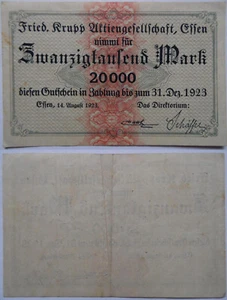 Fried. Krupp Aktiengesellschaft, Essen
nimmt für
Zwanzigtausend Mark
20000
diesen Gutschein in Zahlung bis zum 31. Dez. 1923
Essen, 14. August 1923. Das Direktorium:
Schäffer